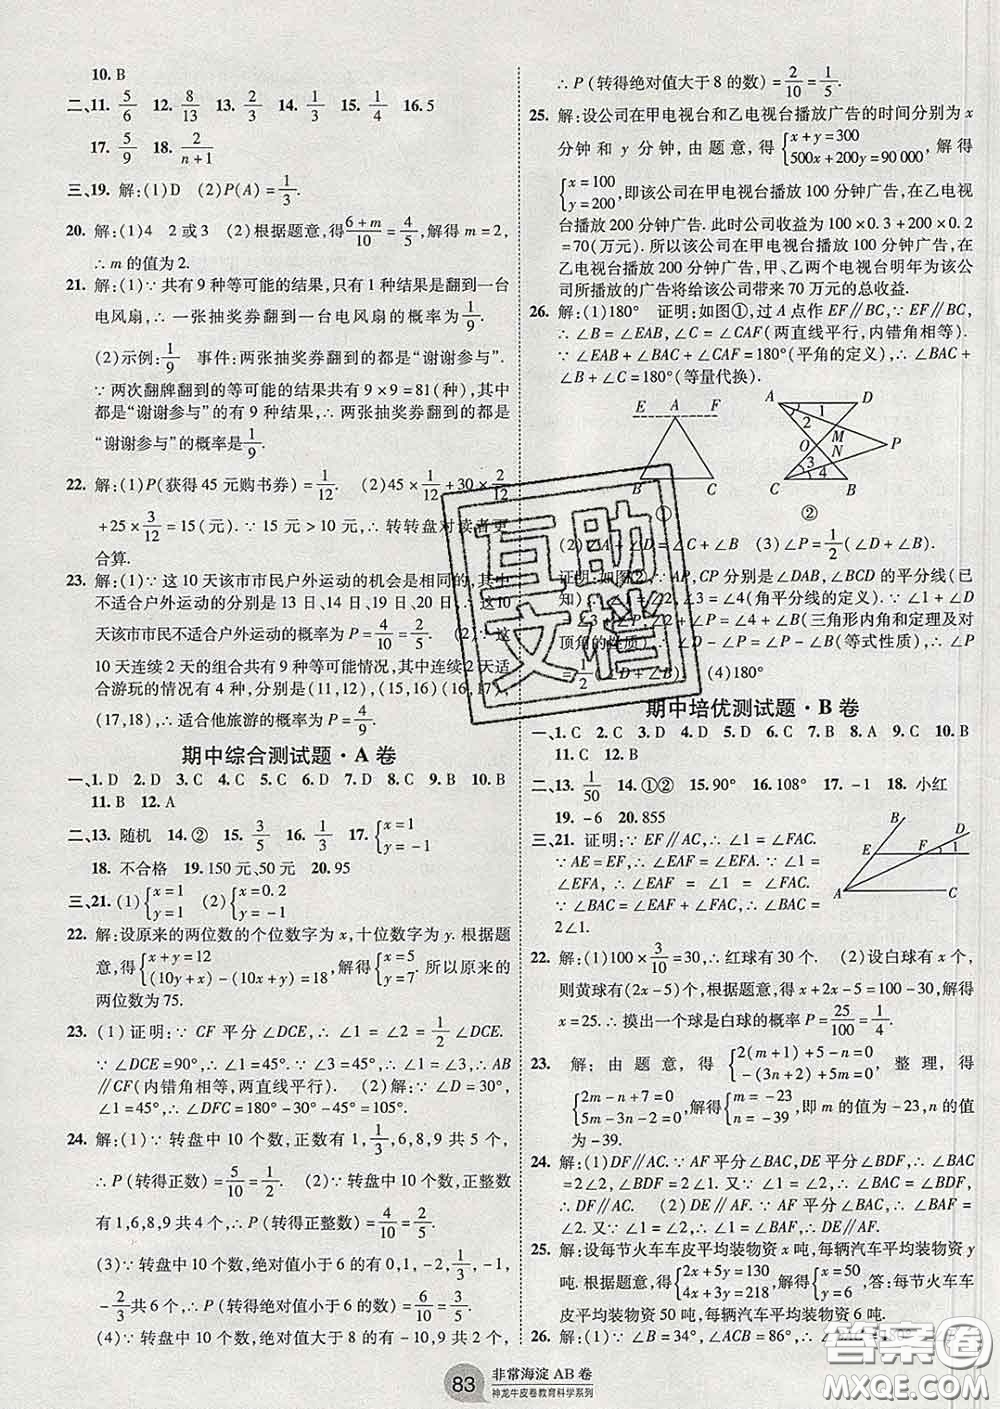 10. B
二、11. 5/6 12. 8/13 13. 2/3 14. 1/3 15. 1/4 16. 5
17. 5/9 18. 2/(n+1)
三、19. 解:(1)D (2)P(A)=1/3.
20. 解:(1)4 2或3 (2)根据题意,得(6+m)/10=4/5,解得 m=2,
∴m的值为2.
21. 解:(1)∵共有9种等可能的结果,只有1种结果翻到一台
电风扇,∴一张抽奖券翻到一台电风扇的概率为1/9.
(2)示例:1/9 事件:两张抽奖券翻到的都是“谢谢参与”.
∵两次翻牌翻到的等可能的结果共有9×9=81(种),其中
都是“谢谢参与”的有9种结果,∴两张抽奖券翻到的都是
“谢谢参与”的概率是1/9.
22. 解:(1)P(获得45元购书券)=1/12. (2)45×1/12+30×2/12
+25×3/12=15(元).∵15>10元,∴转转盘对读者更
合算.
23. 解:(1)∵这10天该市市民户外运动的机会是相同的,其中
不适合户外运动的分别是13日、14日、19日、20日,∴这10
天该市市民不适合户外运动的概率为P=4/10=2/5. (2)∵这
10天连续2天的组合共有9种等可能情况,其中连续2天适
合游玩的情况有4种,分别是(11,12),(15,16)(16,17),
(17,18),∴适合他旅游的概率为P=4/9.
期中综合测试题·A卷
一、1. D 2. D 3. C 4. C 5. D 6. B 7. D 8. C 9. B 10. B
11. B 12. A
二、13. 随机 14. ② 15. 3/5 16. 1/3 17. {x=1 y=-1
18. 不合格 19. 150元、50元 20. 95
三、21. (1){x=1 y=1 (2){x=0.2 y=1
22. 解:设原来的两位数的个位数字为x,十位数字为y.根据题
意,得{x+y=12 (10y+x)-(10x+y)=18,解得{x=5 y=7.所以原来的
两位数为75.
23. (1)证明:∵CF平分∠DCE,∴∠1=∠2=1/2∠DCE.
∵∠DCE=90°,∴∠1=45°.∵∠3=45°,∴∠1=∠3,∴AB
∥CF(内错角相等,两直线平行). (2)解:∵∠D=30°,
∠1=45°,∴∠DFC=180°-30°-45°=105°.
24. 解:(1)∵转盘中10个数,正数有1,1/3,6,8,9共5个,
∴P(转得正数)=5/10=1/2. (2)∵转盘中10个数,正整数
有1,6,8,9共4个,∴P(转得正整数)=4/10=2/5.
(3)∵转盘中10个数,绝对值小于6的有0,1,-2,-1,1/3,
-2/3共6个,∴P(转得绝对值小于6的数)=6/10=3/5.
(4)∵转盘中10个数,绝对值大于8的有-10,9共2个,
∴P(转得绝对值大于8的数)=2/10=1/5.
25. 解:设公司在甲电视台和乙电视台播放广告的时间分别为x
分钟和y分钟,由题意,得{x+y=300 500x+200y=90 000,解得
{x=100 y=200,即该公司在甲电视台播放100分钟广告,在乙电视
台播放200分钟广告.此时公司收益为100×0.3+200×0.2
=70(万元).所以该公司在甲电视台播放100分钟广告,在
乙电视台播放200分钟广告,甲、乙两个电视台明年为该公
司所播放的广告将给该公司带来70万元的总收益.
26. 解:(1)180° 证明:如图①,过A点作EF∥BC,∵EF∥BC,
∴∠B=∠EAB,∠C=∠CAF(两直线平行,内错角相等).
∵∠EAB+∠BAC+∠CAF=180°(平角的定义),∴∠BAC
+∠B+∠C=180°(等量代换).
E A F
B C
①
A D 1 2 M O N P 3 4 C B
②
(2)∠A+∠D=∠B+∠C (3)∠P=1/2(∠D+∠B)
证明:如图②,∵AP,CP分别是∠DAB,∠BCD的平分线(已
知),∴∠1=∠2,∠3=∠4(角平分线的定义).∵∠1+∠D
=∠P+∠3,∠2+∠P=∠4+∠B(三角形内角和定理及对
顶角的性质),∴∠D-∠P=∠P-∠B(等式性质),∴∠P
=1/2(∠D+∠B). (4)180°
期中培优测试题·B卷
一、1. C 2. C 3. D 4. D 5. D 6. C 7. B 8. A 9. C 10. B
11. C 12. B
二、13. 1/50 14. ①② 15. 90° 16. 108° 17. -1 18. 小红
19. -6 20. 855
三、21. 证明:∵EF∥AC,∴∠1=∠FAC.
∵AE=EF,∴∠EAF=∠EFA.∵∠1=
∠EFA,∴∠EAF=∠1,∴∠BAC=2∠1.
∵∠BAC=∠EAF+∠FAC,∴∠BAC=
2∠1.
B D E F 1 A C
22. 解:(1)100×3/10=30,∴红球有30个. (2)设白球有x个,
则黄球有(2x-5)个,根据题意,得x+2x-5=100-30,解得
x=25.∴摸出一个球是白球的概率P=25/100=1/4.
23. 解:由题意,得{2(m+1)+5-n=0 -(3n+2)+5m=0,整理,得
{2m-n+7=0 5m-3n-2=0,解得{m=-23 n=-39,即m的值为-23,n的值
为-39.
24. 解:(1)DF∥AC.∵AF平分∠BAC,DE平分∠BDF,∴∠BAC
=2∠2,∠BDF=2∠1.又∵∠1=∠2,∴∠BDF=
∠BAC,∴DF∥AC. (2)DE∥AF.∵AF平分∠BAC,∴∠BAF
=∠2.又∵∠1=∠2,∴∠1=∠BAF,∴DE∥AF.
25. 解:设每节火车车皮平均装物资x吨,每辆汽车平均装物资y
吨.根据题意,得{2x+5y=130 4x+3y=218,解得{x=50 y=6,答:每节火车车
皮平均装物资50吨,每辆汽车平均装物资6吨.
26. 解:(1)∵∠B=34°,∠ACB=86°,∴
83 非常海淀AB卷
神龙牛皮卷教育科学系列
互助文档
答案圈
MXQE.COM